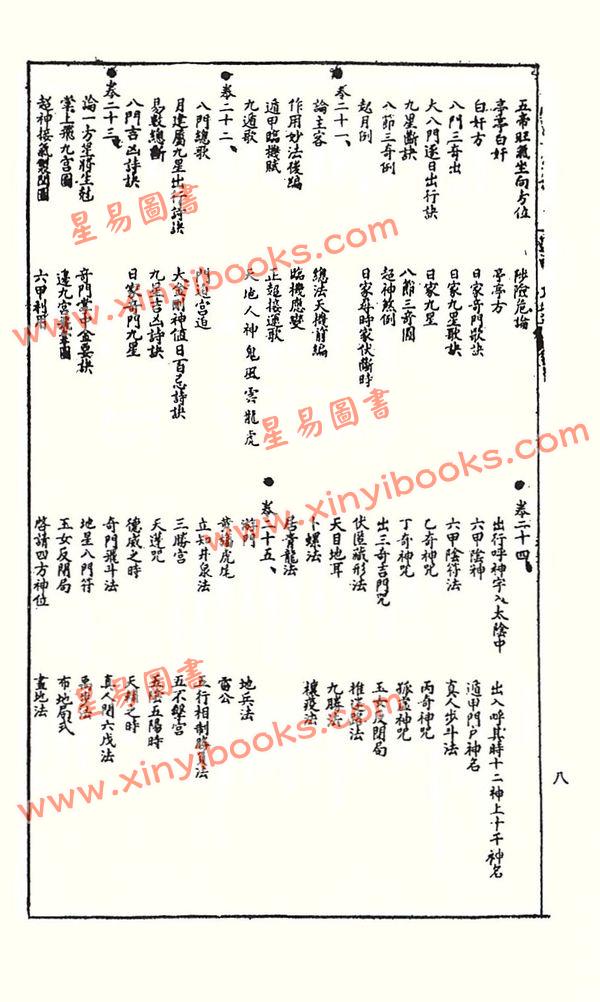 五帝旺氣坐向方位
亭亭白奸
白奸方
八門三奇出
大八門逐日出行訣
九星斷訣
八節三奇例
起月例
卷二十一、
論主客
作用妙法後編
遁甲臨機賦
九遁歌
卷二十二、
八門總歌
月建屬九星出行詩訣
易數總斷
八門吉凶詩訣
卷二十三、
論一方星將生尅
掌上飛九宮圖
超神接氣製閏圖
陟險危論
亭亭方
日家奇門歌訣
日家九星歌訣
日家九星
八節三奇圖
超神煞例
日家每時家伏斷時
總法天機前編
臨機應變
正超接遁歌
天地人神鬼風雲龍虎
門迫宮迫
大金剛神值日百忌詩訣
九星吉凶詩訣
日家奇門九星
奇門掌中金要訣
逢九宮
六甲利用
卷二十四、
出行呼神字入太陰中
六甲陰神
六甲陰符法
乙奇神咒
丁奇神咒
出三奇吉門咒
伏匿藏形法
天目地耳
卜螺法
居青龍法
卷二十五、
游門
黃蟠虎尾
立知井泉法
三勝宮
天蓬咒
德威之時
奇門飛斗法
地星八門符
玉女反閉局
啓請四方神位
出入呼其時十二神上十干神名
遁甲門戶神名
真人步斗法
丙奇神咒
孤虛神咒
玉女反閉局
推迷路法
九勝法
禳疫法
地兵法
雷公
五行相制勝負法
五不擊宮
五陰五陽時
天輔之時
真人閉六戊法
禹步法
布地局式
畫地法
八
星易圖書
www.xinyibooks.com
星易圖書
www.xinyibooks.com
星易圖書
www.xinyibooks.com